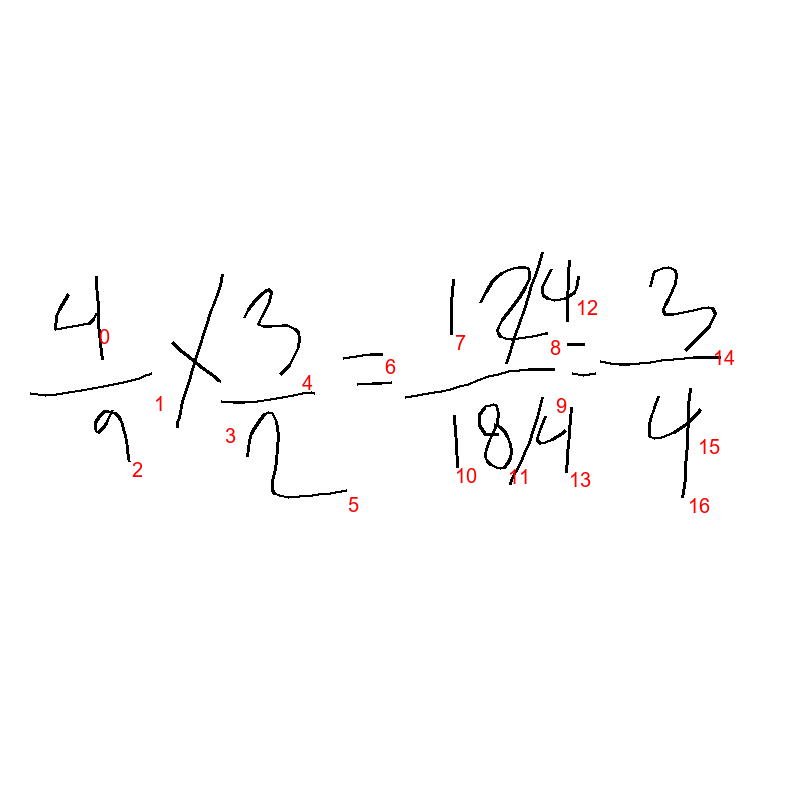 4/9 × 3/2 = 12/4 / 18/4 = 3/4
0 1 2 3 4 5 6 7 8 9 10 11 12 13 14 15 16